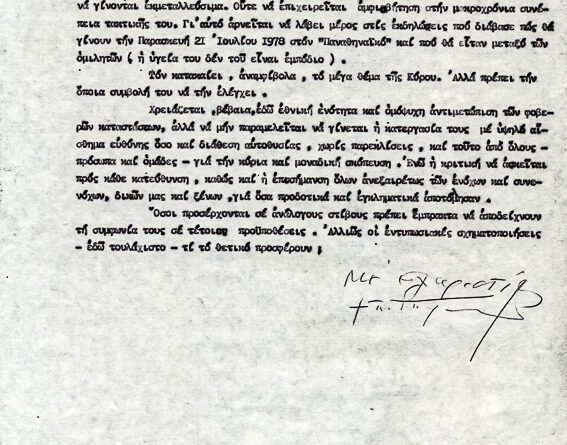 νά γίνονται ἐκμεταλλεύσιμα. Οὔτε νά ἐπιχειρεῖται ἀμφισβήτηση στήν μακροχρόνια συνέ-
πεια τακτικῆς του. Γι'αὐτό ἀρνεῖται νά λάβει μέρος στίς ἐκδηλώσεις πού διάβασε πώς θά
γίνουν τήν Παρασκευή 21 Ἰουλίου 1978 στόν "Παναθηναϊκό" καί πού θά εἶταν μεταξύ τῶν
ὁμιλητῶν ( ἡ ὑγεία του δέν τοῦ εἶναι ἐμπόδιο ) .
Τόν κατακαίει , ἀναμφίβολα , τό μέγα θέμα τῆς Κύπρου. Ἀλλά πρέπει τήν
ὅποια συμβολή του νά τήν ἐλέγχει .
Χρειάζεται ,βέβαια,ἐδῶ ἐθνική ἑνότητα καί ὁμόψυχη ἀντιμετώπιση τῶν φοβε-
ρῶν καταστάσεων, ἀλλά νά μήν παραμελεῖται νά γίνεται ἡ κατεργασία τους μέ ὑψηλό αἴ-
σθημα εὐθύνης ὅσο καί διάθεση αὐτοθυσίας , χωρίς παρεκλίσεις , καί τοῦτο ἀπό ὅλους -
πρόσωπα καί ὁμάδες - γιά τήν κύρια καί μοναδική σκόπευση . Ἐνῶ ἡ κριτική νά ἀφιεῖται
πρός κάθε κατεύθυνση , καθώς καί ἡ ἐπισήμανση ὅλων ἀνεξαιρέτως τῶν ἐνόχων καί συνε-
νόχων, δικῶν μας καί ξένων ,γιά ὅσα προδοτικά καί ἐγκληματικά ἀποτόλμησαν .
Ὅσοι προσέρχονται σέ ἀνάλογους στίβους πρέπει ἔμπρακτα νά ἀποδείχνουν
τή συμφωνία τους σέ τέτοιες προϋποθέσεις . Ἀλλιῶς οἱ ἐντυπωσιακές σχηματοποιήσεις
- ἐδῶ τουλάχιστο - τί τό θετικό προσφέρουν ;
Μέ εὐχαριστίες